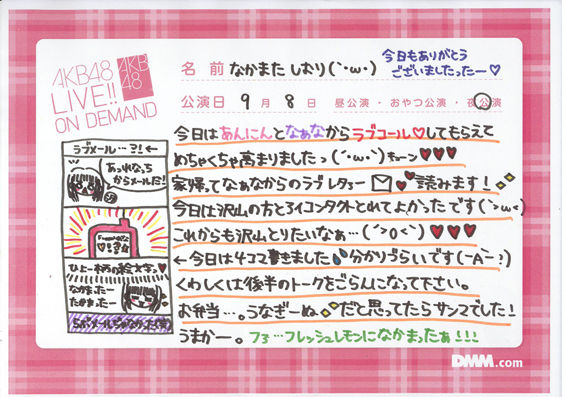 AKB48
LIVE!!
ON DEMAND
AKB
48
名前 なかまた しおり(`･ω･)
今日もありがとう
ございましたったー♡
公演日 9月8日 昼公演・おやつ公演・夜公演
今日はあんにんとなぁなからラブコール♡してもらえて
めちゃくちゃ高まりましたっ(´･ω･`)キューン♥♥♥
家帰ってなぁなからのラブレター✉♥♥読みます!
今日は沢山の方とアイコンタクトとれてよかったです(`>ω<)
これからも沢山とりたいなぁ…(´>0<`)♥♥♥
←今日は4コマ書きました 分かりづらいです(-A-?)
くわしくは後半のトークをごらんになって下さい。
お弁当…。うなぎーぬ だと思ってたらサンマでした!
うまかー。フラ…フレッシュレモンになかまったぁ!!!
ラブメール…?!←
あっれなっち
からメールだ!
ひょー柄の絵文字♡
なかまったー
たかまったー
らぶメールぢゃなかった(笑)
DMM.com